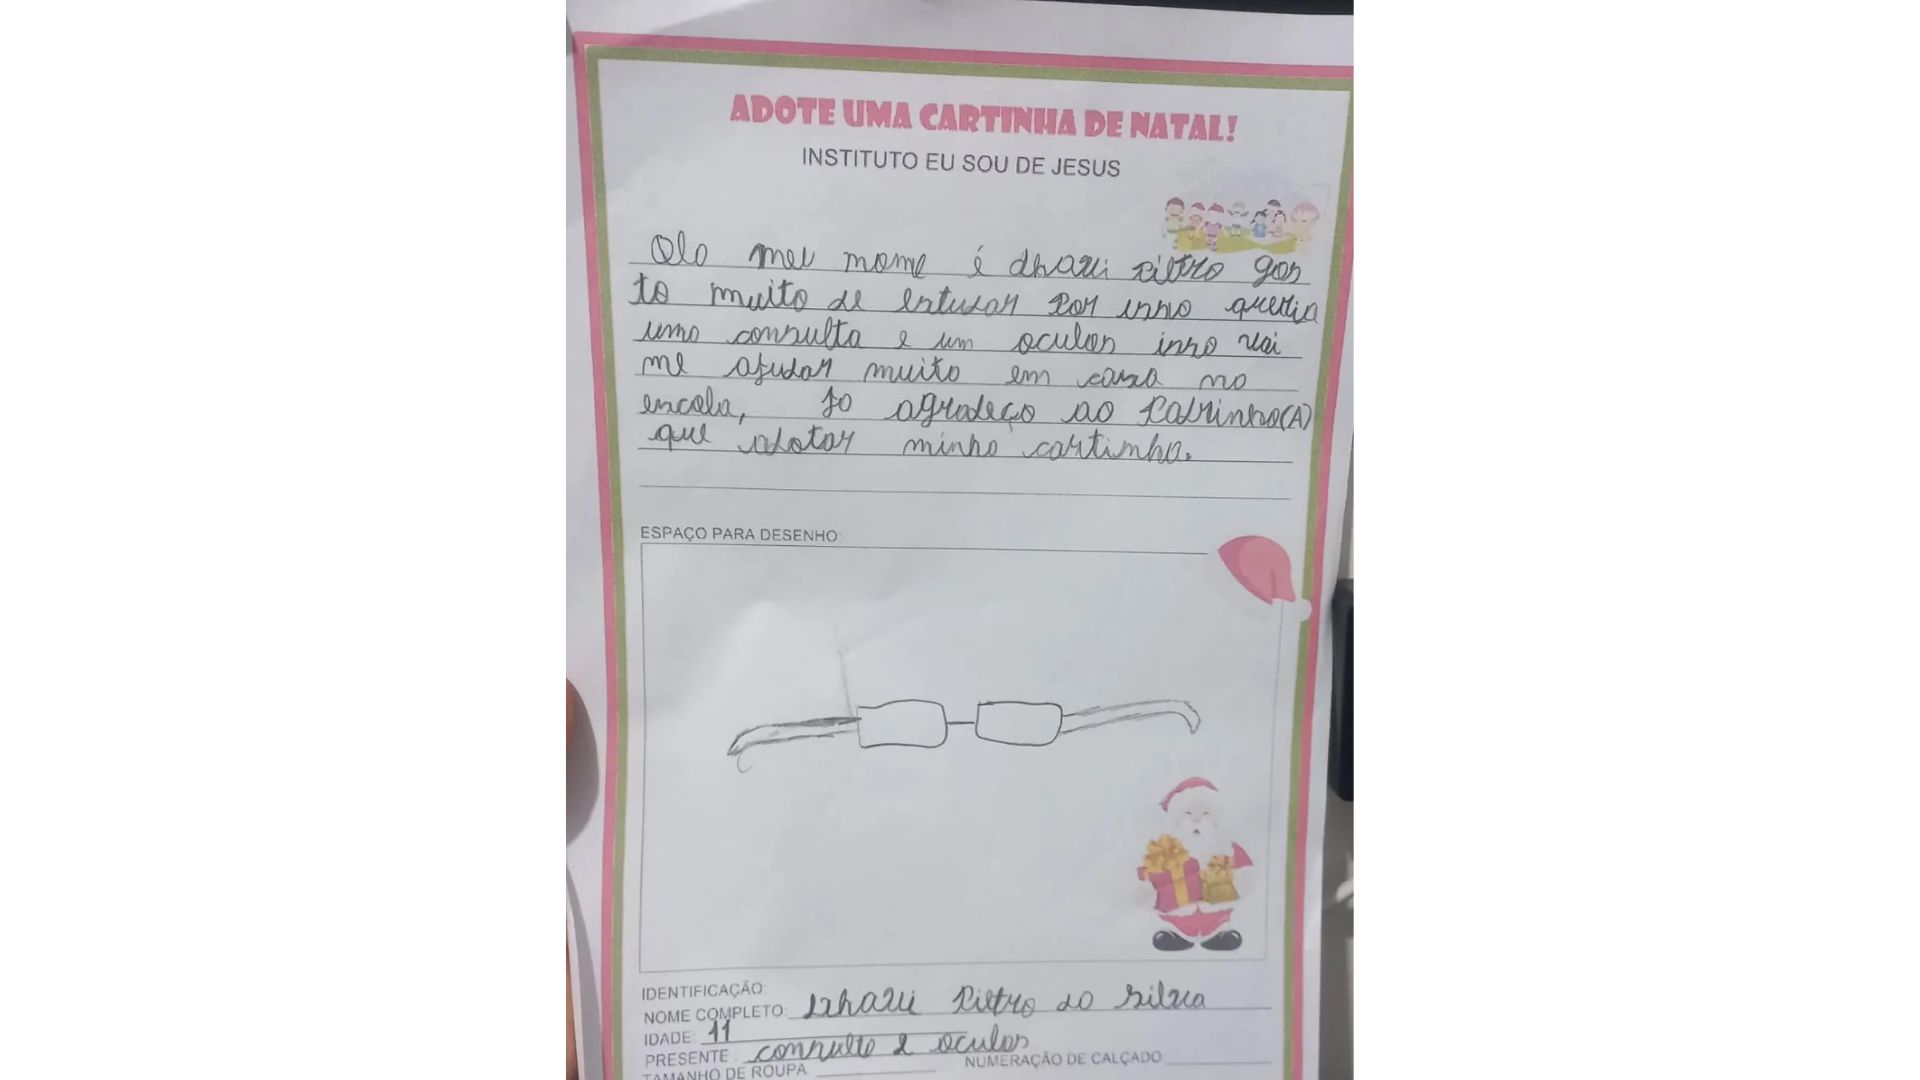 ADOTE UMA CARTINHA DE NATAL!
INSTITUTO EU SOU DE JESUS
Olá meu nome é dhavi Pietro gos
to muito de estudar Por isso queria
uma consulta e um oculos isso vai
me ajudar muito em casa na
escola, Já agradeço ao Padrinho(A)
que adotar minha cartinha.
ESPAÇO PARA DESENHO:
IDENTIFICAÇÃO:
NOME COMPLETO: Dhavi Pietro da Silva
IDADE: 11
PRESENTE: consulta e oculos
TAMANHO DE ROUPA NUMERAÇÃO DE CALÇADO